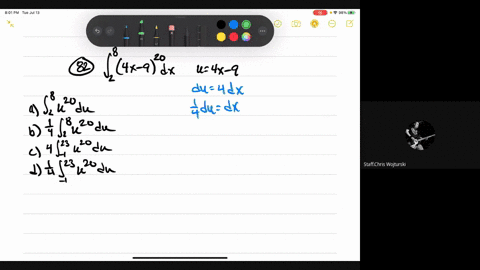 8:01 PM Tue Jul 13
94%
82 ∫₂⁸ (4x-9)²⁰ dx u=4x-9
du = 4dx
¼du = dx
a) ∫₂⁸ u²⁰ du
b) ¼ ∫₂⁸ u²⁰ du
c) 4 ∫₋₁²³ u²⁰ du
d) ¼ ∫₋₁²³ u²⁰ du
Staff.Chris Wojturski